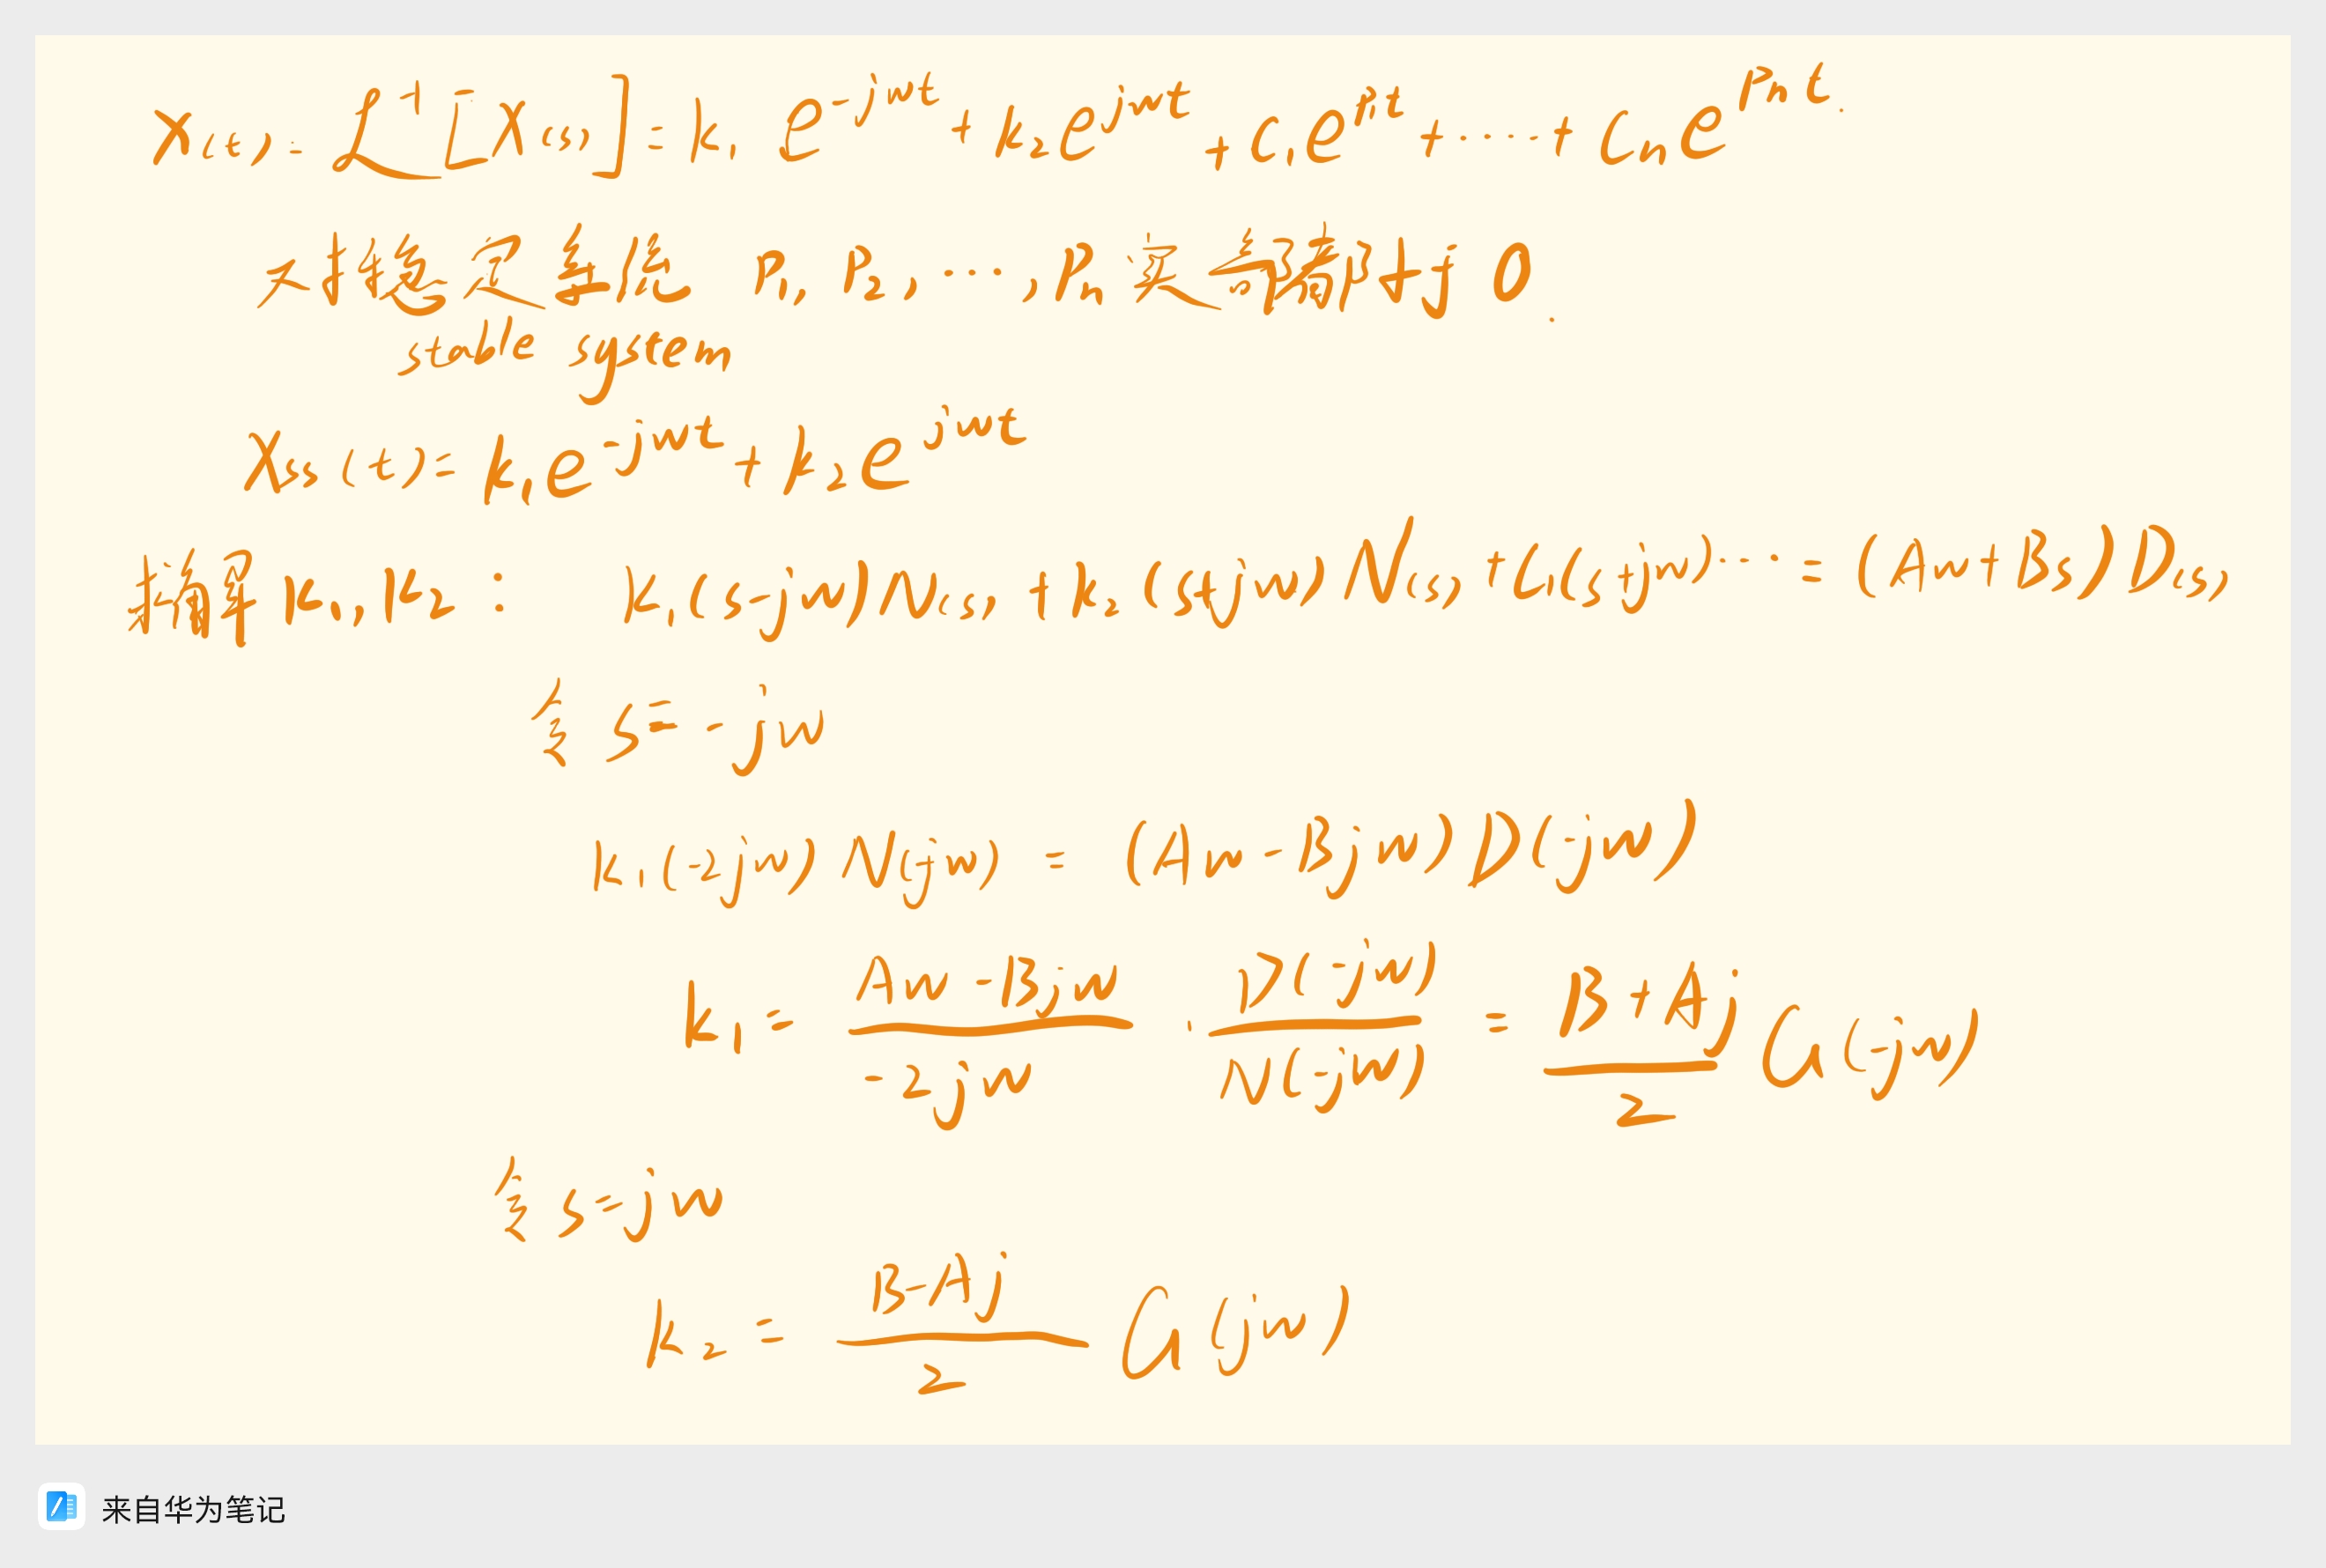 X(t) = ℒ⁻¹[X(s)] = k₁ e^{-jwt} + k₂ e^{jwt} + C₁ e^{P₁t} + ···· + Cₙ e^{Pₙt}.
对稳定系统 P₁, P₂, ···, Pₙ 实部都 < 0.
stable system
Xss(t) = k₁e^{-jwt} + k₂e^{jwt}
求解 k₁, k₂ : k₁(s-jw)N(s) + k₂(s+jw)N(s) + C₁(s+jw)···· = (Aw+Bs)D(s)
令 s = -jw
k₁(-2jw) N(-jw) = (Aw-Bjw) D(-jw)
k₁ = \frac{Aw-Bjw}{-2jw} · \frac{D(-jw)}{N(-jw)} = \frac{B+Aj}{2} G(-jw)
令 s=jw
k₂ = \frac{B-Aj}{2} G(jw)
来自华为笔记